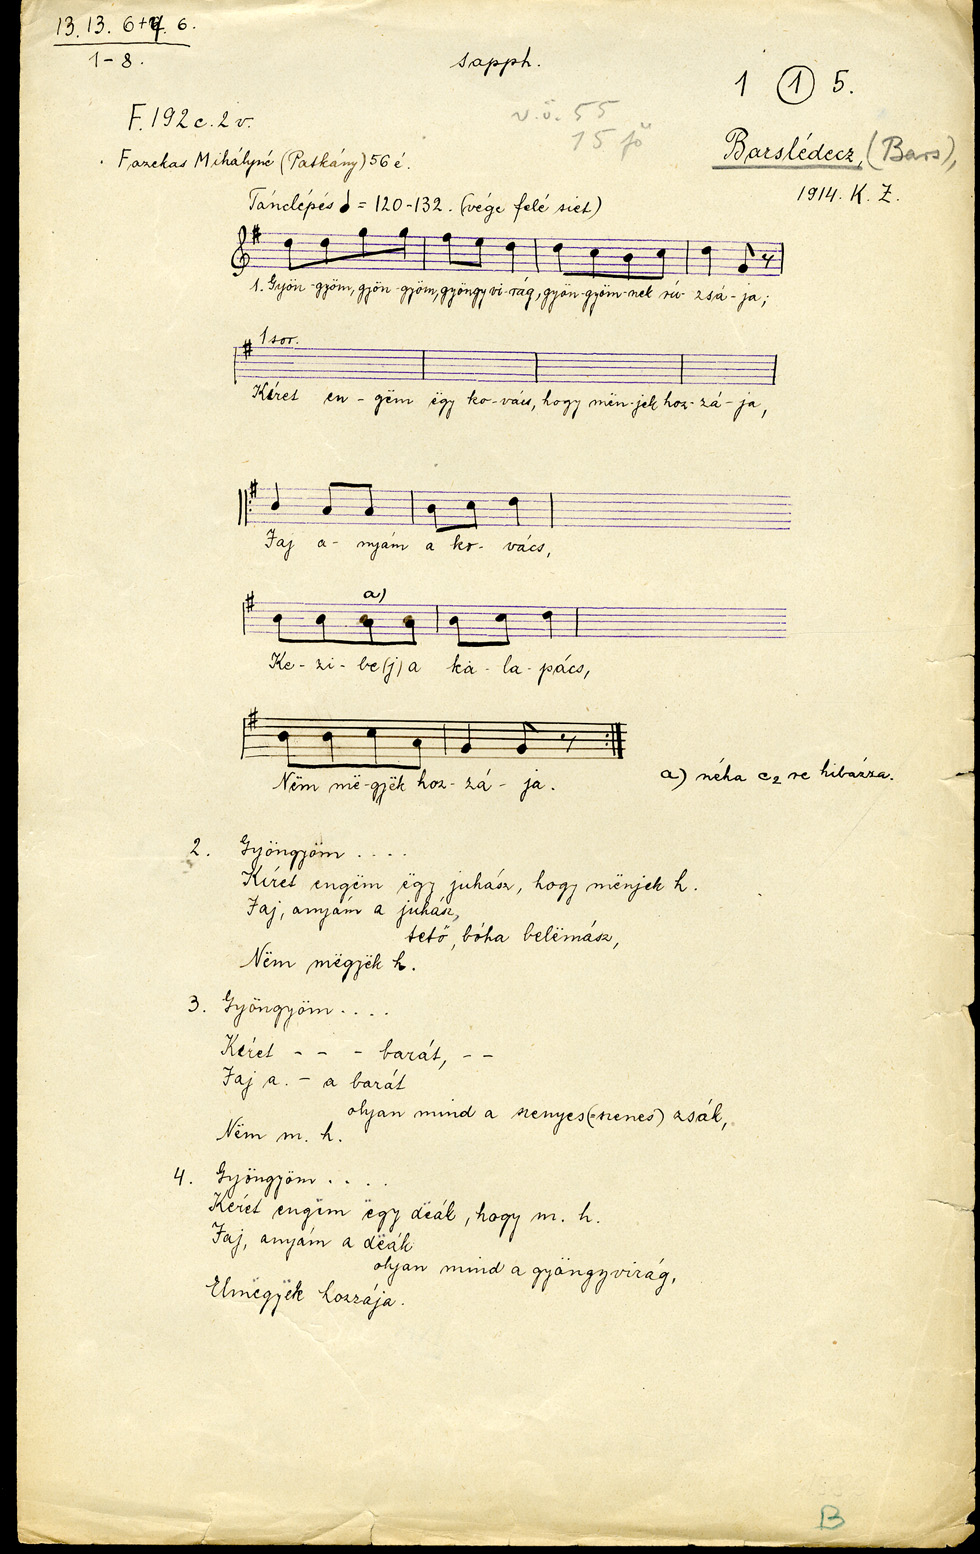 13. 13. 6+7. 6.
1-8.
sapph.
1 1 5.
F. 192c. 2v.
v.ö. 55
15 fő
Fazekas Mihályné (Patkány) 56 é.
Barslédecz, (Bars),
1914. K. Z.
Tánclépés = 120-132. (vége felé siet)
1. Gyön-gyöm, gyön-gyöm, gyöngy vi-rág, gyön-gyöm-nek rú-zsá-ja;
1 sor.
Kéret en-gëm ëgy ko-vács, hogy mën-jek hoz-zá-ja,
Jaj a-nyám a ko-vács,
a)
Ke-zi-be(j) a ka-la-pács,
Nëm më-gyëk hoz-zá-ja.
a) néha c2 re hibázza.
2. Gyöngyöm ....
Kéret engëm ëgy juhász, hogy mënjek h.
Jaj, anyám a juhász,
tető, bóha belëmász,
Nëm mëgyëk h.
3. Gyöngyöm ....
Kéret - - - barát, - -
Jaj a. - a barát
olyan mind a szenyes(szenes) zsák,
Nëm m. h.
4. Gyöngyöm ....
Kéret engëm ëgy dëák, hogy m. h.
Jaj, anyám a dëák
olyan mind a gyöngyvirág,
Elmëgyëk hozzája.
B